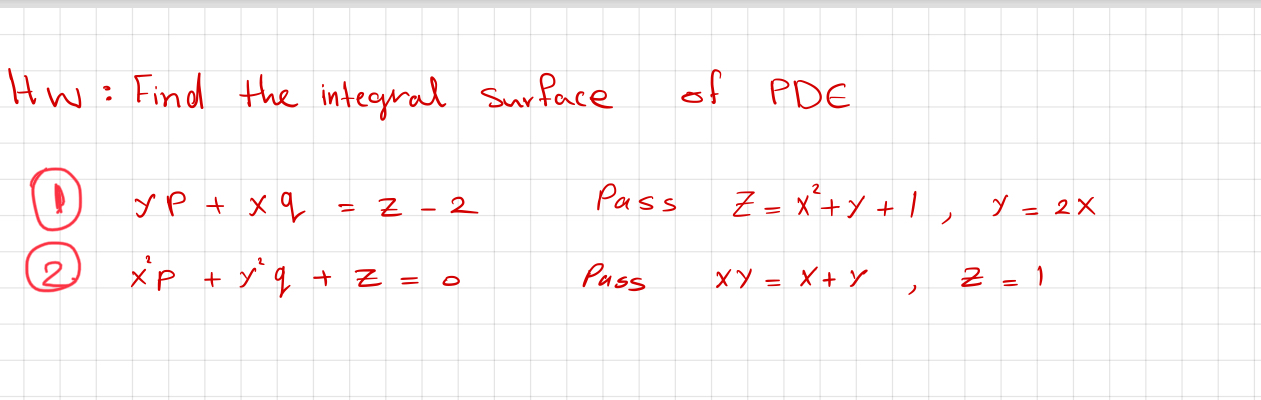 HW: Find the integral surface of PDE
① yp + xq = z - 2 Pass z = x² + y + 1, y = 2x
② x²p + y²q + z = 0 Pass xy = x + y, z = 1